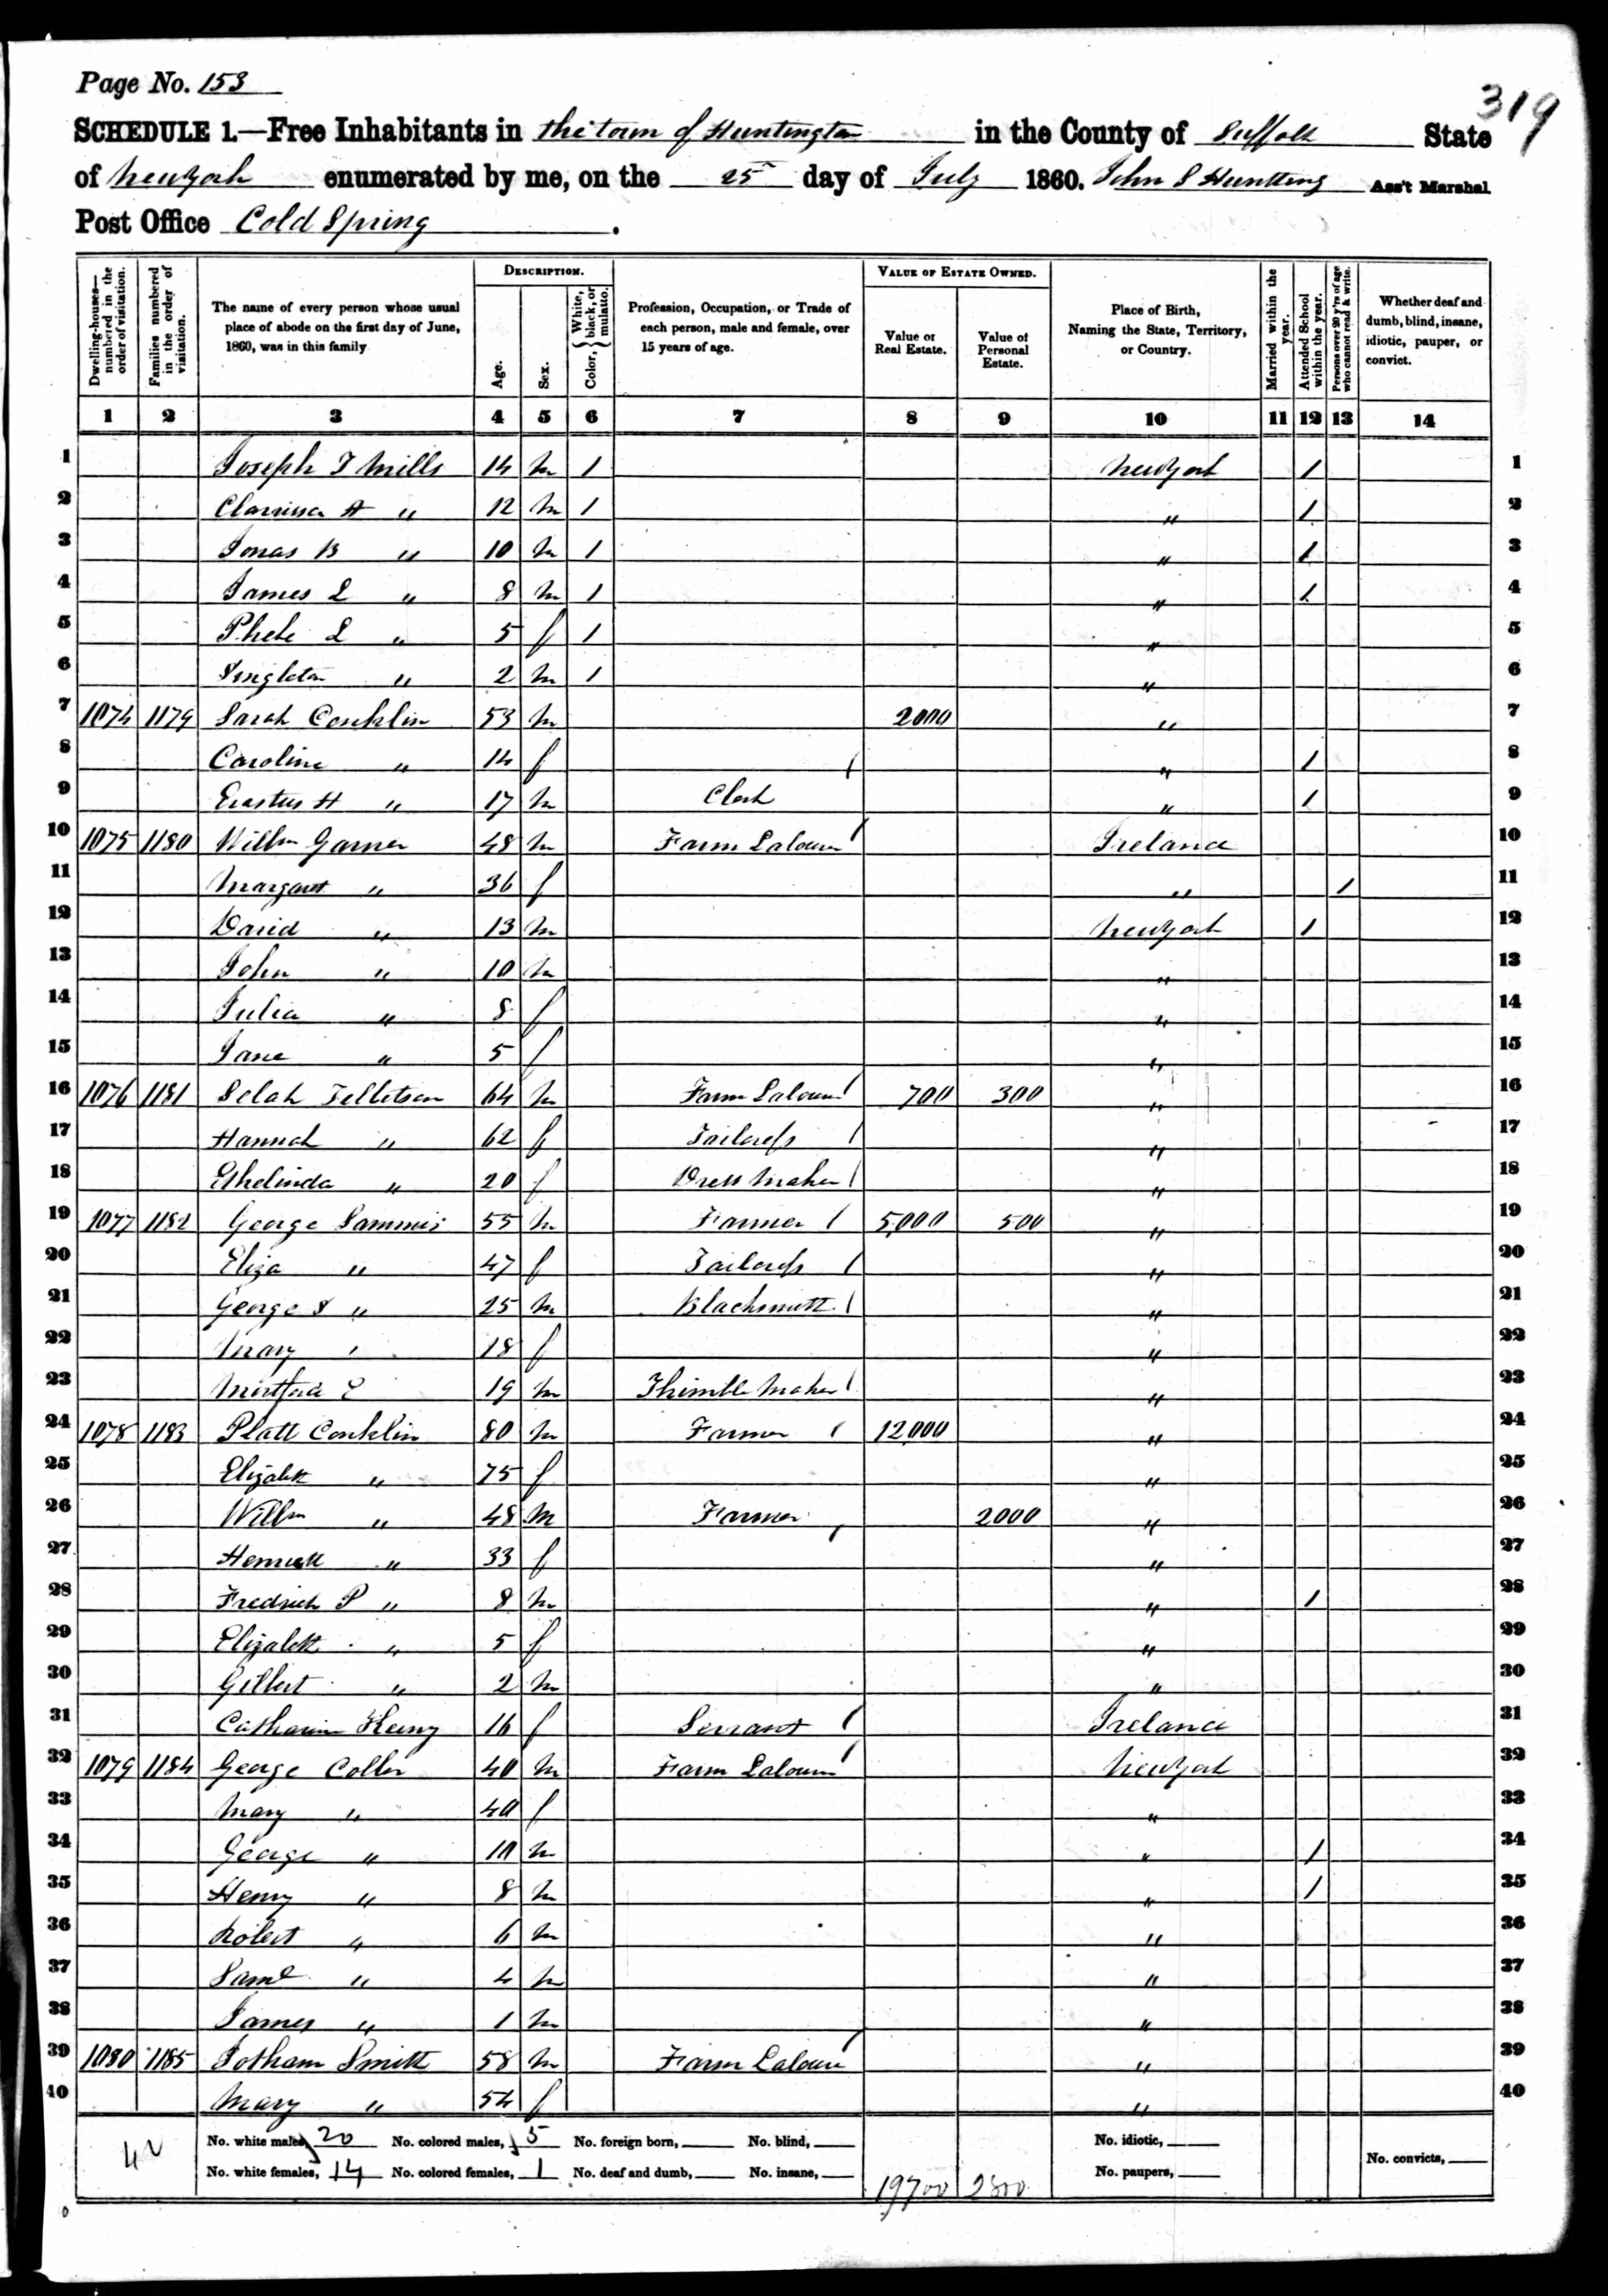 319
Page No. 153
SCHEDULE 1.—Free Inhabitants in the town of Huntington in the County of Suffolk State
of New York enumerated by me, on the 25 day of July 1860. John S Huntting Ass't Marshal
Post Office Cold Spring.
Dwelling-houses—numbered in the order of visitation.
Families numbered in the order of visitation.
The name of every person whose usual place of abode on the first day of June, 1860, was in this family
DESCRIPTION.
Age.
Sex.
Color, { White, black, or mulatto.
Profession, Occupation, or Trade of each person, male and female, over 15 years of age.
VALUE OF ESTATE OWNED.
Value of Real Estate.
Value of Personal Estate.
Place of Birth, Naming the State, Territory, or Country.
Married within the year.
Attended School within the year.
Persons over 20 y'rs of age who cannot read & write.
Whether deaf and dumb, blind, insane, idiotic, pauper, or convict.
1 2 3 4 5 6 7 8 9 10 11 12 13 14
1 Joseph T Mills 14 m 1 New York 1 1
2 Clarissa A " 12 m 1 " 1 2
3 Jonas B " 10 m 1 " 1 3
4 James L " 8 m 1 " 1 4
5 Phebe L " 5 f 1 " 5
6 Singleton " 2 m 1 " 6
7 1074 1179 Sarah Conklin 53 m 2000 " 7
8 Caroline " 14 f " 1 8
9 Erastus H " 17 m Clerk " 1 9
10 1075 1180 Willm Garner 48 m Farm Labourer Ireland 10
11 Margaret " 36 f " 1 11
12 David " 13 m New York 1 12
13 John " 10 m " 13
14 Julia " 8 f " 14
15 Jane " 5 f " 15
16 1076 1181 Selah Tellotson 64 m Farm Labourer 700 300 " 16
17 Hannah " 62 f Tailoress " 17
18 Ethelinda " 20 f Dress Maker " 18
19 1077 1182 George Sammis 55 m Farmer 5,000 500 " 19
20 Eliza " 47 f Tailoress " 20
21 George S " 25 m Blacksmith " 21
22 Mary " 18 f " 22
23 E 19 m Thimble Maker " 23
24 1078 1183 Platt Conklin 80 m Farmer 12,000 " 24
25 Elizabeth " 75 f " 25
26 Willm " 48 m Farmer 2000 " 26
27 Henriett " 33 f " 27
28 Fredrick P " 8 m " 1 28
29 Elizabeth " 5 f " 29
30 Gilbert " 2 m " 30
31 Catharine 16 f Servant Ireland 31
32 1079 1184 George Coller 40 m Farm Labourer New York 32
33 Mary " 40 f " 33
34 George " 10 m " 1 34
35 Henry " 8 m " 1 35
36 Robert " 6 m " 36
37 Saml " 4 m " 37
38 James " 1 m " 38
39 1080 1185 Jotham Smith 58 m Farm Labour " 39
40 Mary " 54 f " 40
42
No. white males, 20 No. colored males, 5 No. foreign born, No. blind, No. idiotic,
No. white females, 14 No. colored females, 1 No. deaf and dumb, No. insane, 19700 2800 No. paupers, No. convicts,